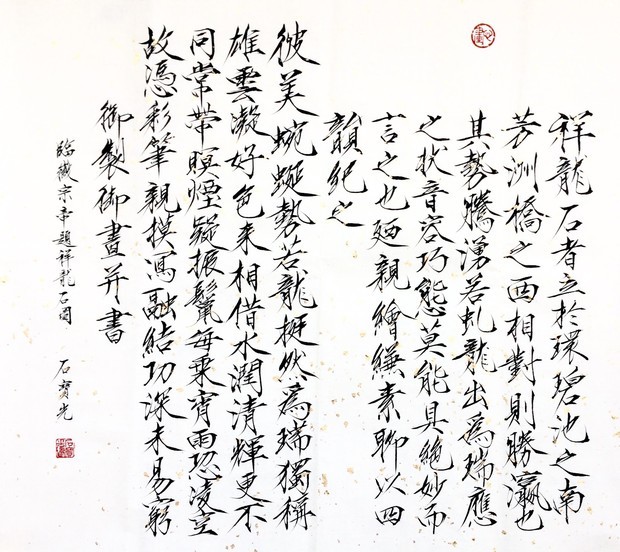 祥龍石者立於環碧池之南
芳洲橋之西相對則勝瀛也
其勢騰湧若虬龍出為瑞應
之狀音容巧態莫能具絕妙而
言之也廼親繪縑素聊以四
韻紀之
彼美蜿蜒勢若龍挺然為瑞獨稱
雄雲凝好色來相借水潤清輝更不
同常帶暝煙疑振鬣每乘宵雨恐凌空
故憑彩筆親摸寫融結功深未易窮
御製御畫并書
臨徽宗帝題祥龍石圖 石寶光